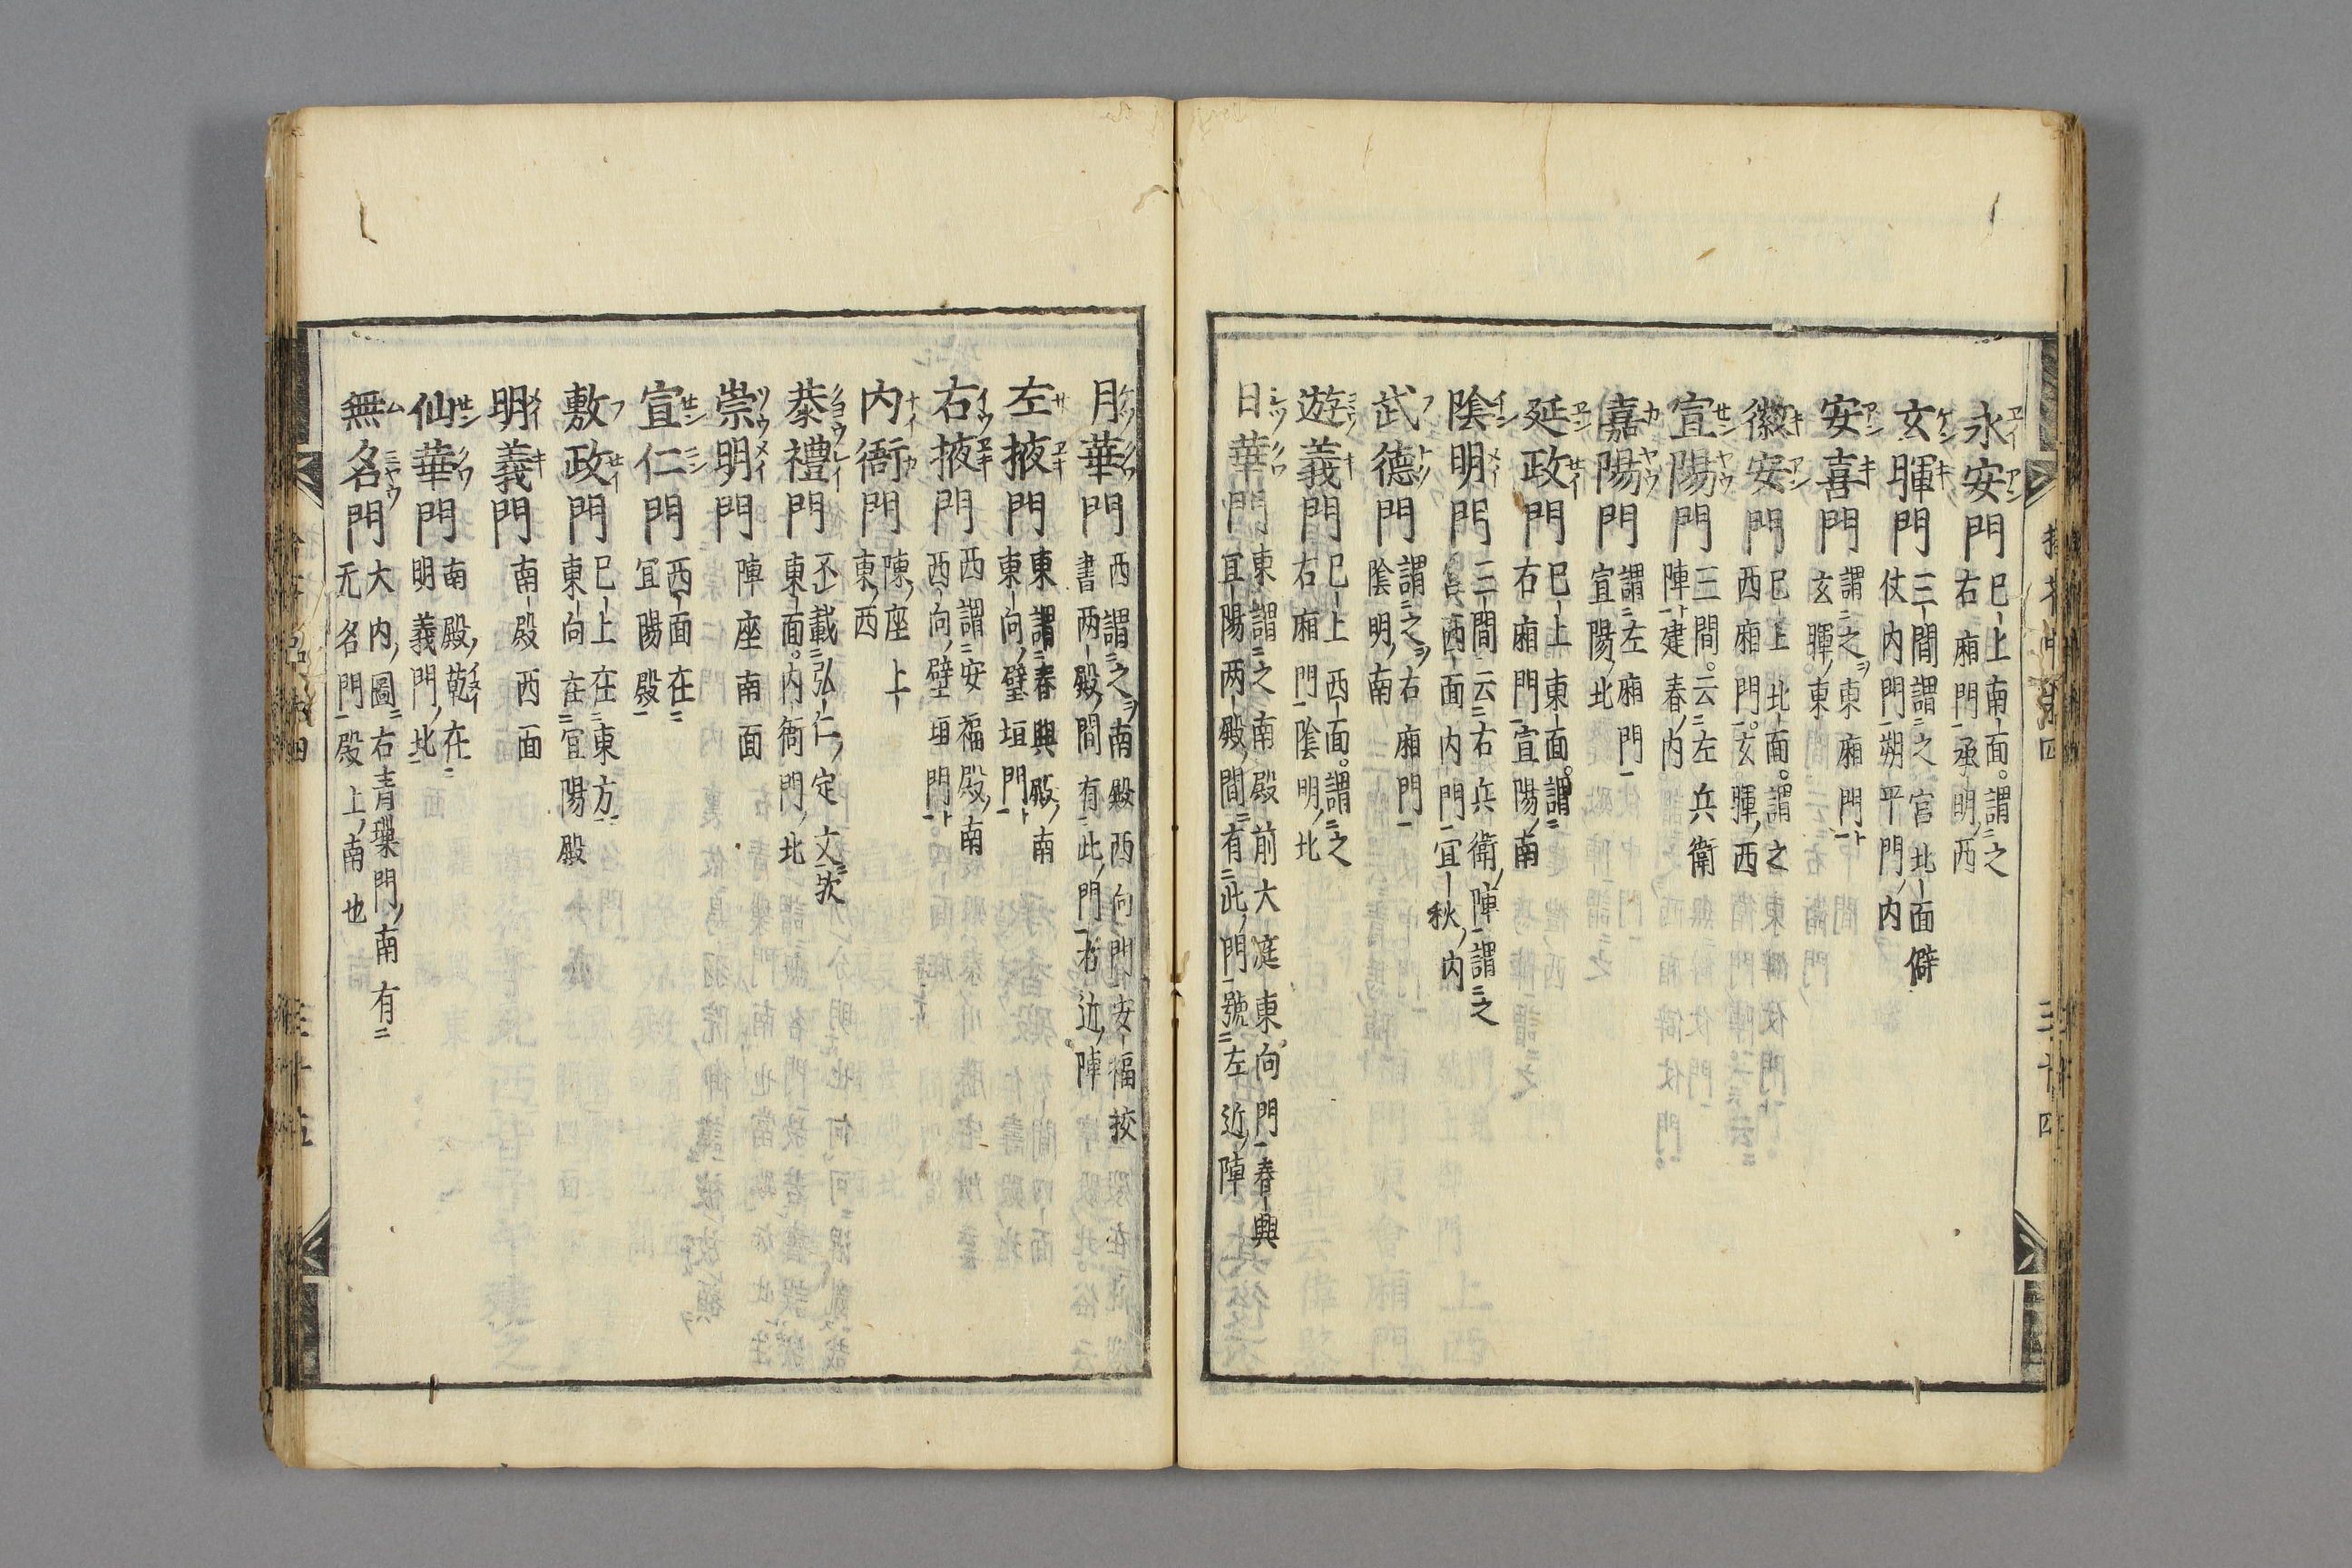 永安門 已上南面。謂之
右廂門承明西
玄暉門 三間謂之宮北面僻
仗内門朔平門内
安喜門 謂之東廂門
玄暉東
徽安門 已上北面。謂之
西廂門。玄暉西
宣陽門 三間。云左兵衛
陣建春内
嘉陽門 謂左廂門
宣陽北
延政門 已上東面。謂
右廂門宣陽南
陰明門 三間云右兵衛陣謂之
宮西面内門宜秋内
武德門 謂之右廂門
陰明南
遊義門 已上西面。謂之
右廂門陰明北
日華門 東謂之南殿前大庭東向門春興
宜陽两殿間有此門號左近陣
月華門 西謂之南殿西向門安福挍
書两殿間有此門右近陣
左掖門 東謂春興殿南
東向壁垣門
右掖門 西謂安福殿南
西向壁垣門
内衙門 陳座上
東西
恭禮門 丕載弘仁定文次
東面。内衙門北
崇明門 陣座南面
宣仁門 西面在
宜陽殿
敷政門 已上在東方
東向在宜陽殿
明義門 南殿西面
仙華門 南殿乾在
明義門北
無名門 大内圖右青璅門南有
无名門殿上南也